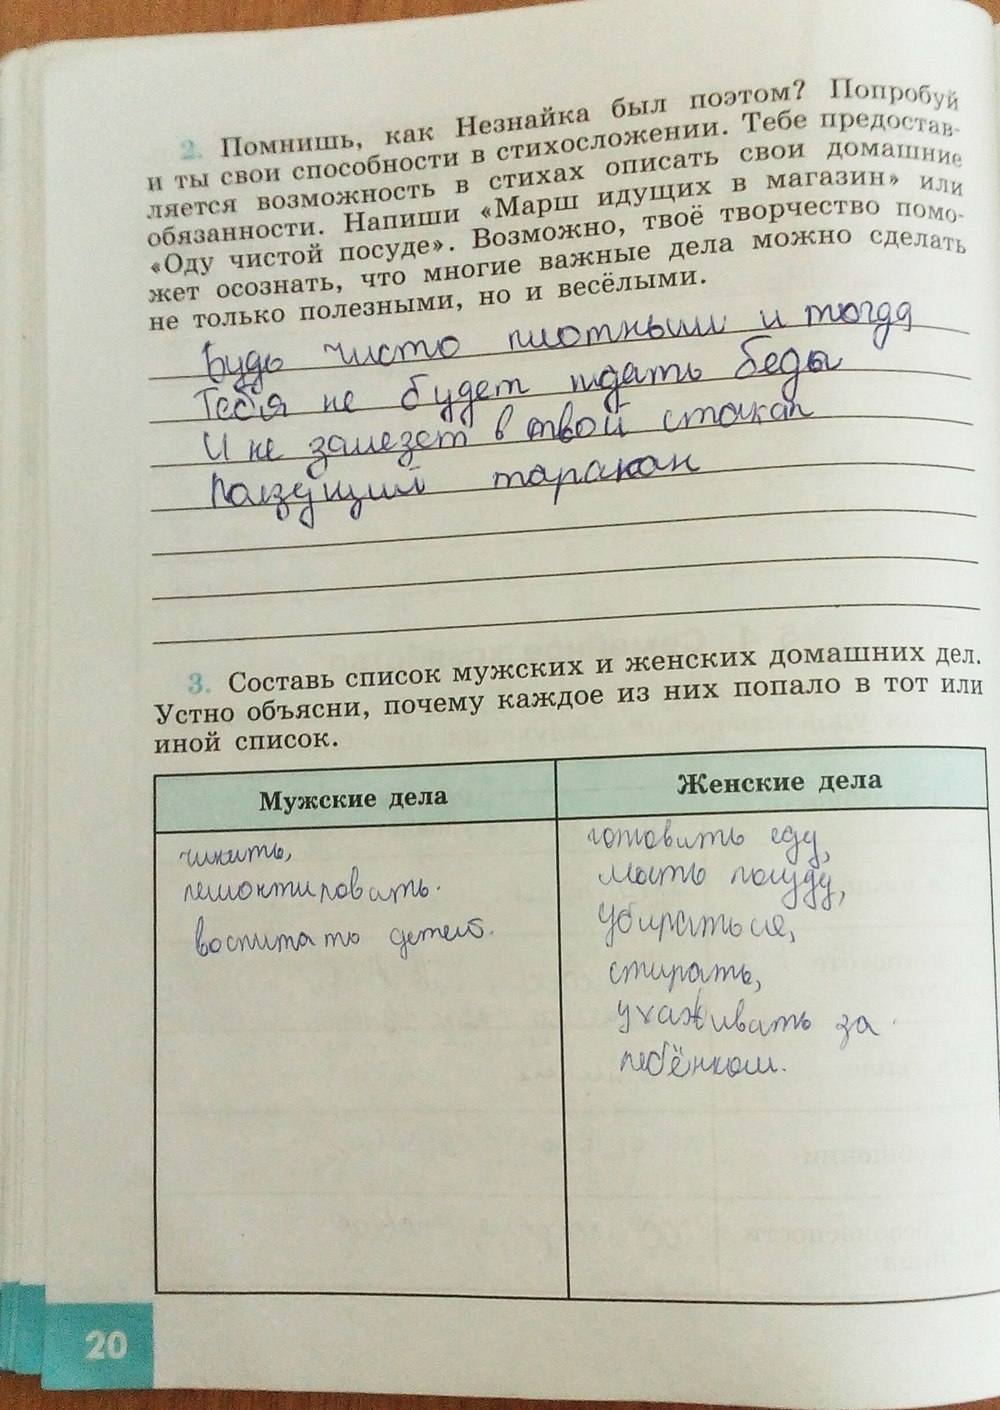 2. Помнишь, как Незнайка был поэтом? Попробуй
и ты свои способности в стихосложении. Тебе предостав-
ляется возможность в стихах описать свои домашние
обязанности. Напиши «Марш идущих в магазин» или
«Оду чистой посуде». Возможно, твоё творчество помо-
жет осознать, что многие важные дела можно сделать
не только полезными, но и весёлыми.
Будь чисто плотным и тогда
Тебя не будет ждать беды
И не залезет в твой стакан
Ползущий таракан
3. Составь список мужских и женских домашних дел.
Устно объясни, почему каждое из них попало в тот или
иной список.
Мужские дела
Женские дела
чинить,
ремонтировать.
воспитать детей.
готовить еду,
мыть посуду,
убираться,
стирать,
ухаживать за
ребёнком.
20